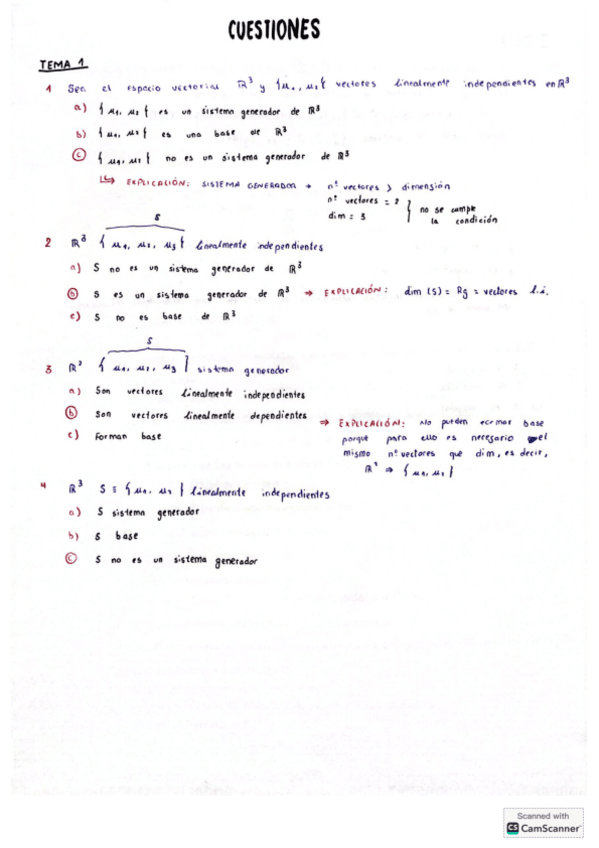 CUESTIONES
TEMA 1
1 Sea el espacio vectorial ℝ³ y {μ₁, μ₂} vectores linealmente independientes en ℝ³
a) {μ₁, μ₂} es un sistema generador de ℝ³
b) {μ₁, μ₂} es una base de ℝ³
c) {μ₁, μ₂} no es un sistema generador de ℝ³
↳ EXPLICACIÓN: SISTEMA GENERADOR → nº vectores ≥ dimensión
nº vectores = 2
dim = 3 } no se cumple
la condición
S
2 ℝ³ {μ₁, μ₂, μ₃} linealmente independientes
a) S no es un sistema generador de ℝ³
b) S es un sistema generador de ℝ³ ⇒ EXPLICACIÓN: dim (S) = Rg = vectores l.i.
c) S no es base de ℝ³
S
3 ℝ² {μ₁, μ₂, μ₃} sistema generador
a) Son vectores linealmente independientes
b) Son vectores linealmente dependientes
⇒ EXPLICACIÓN: No pueden formar base
c) Forman base
porque para ello es necesario el
mismo nº vectores que dim, es decir,
ℝ² ⇒ {μ₁, μ₂}
4 ℝ³ S ≡ {μ₁, μ₂} linealmente independientes
a) S sistema generador
b) S base
c) S no es un sistema generador
Scanned with
CS CamScanner